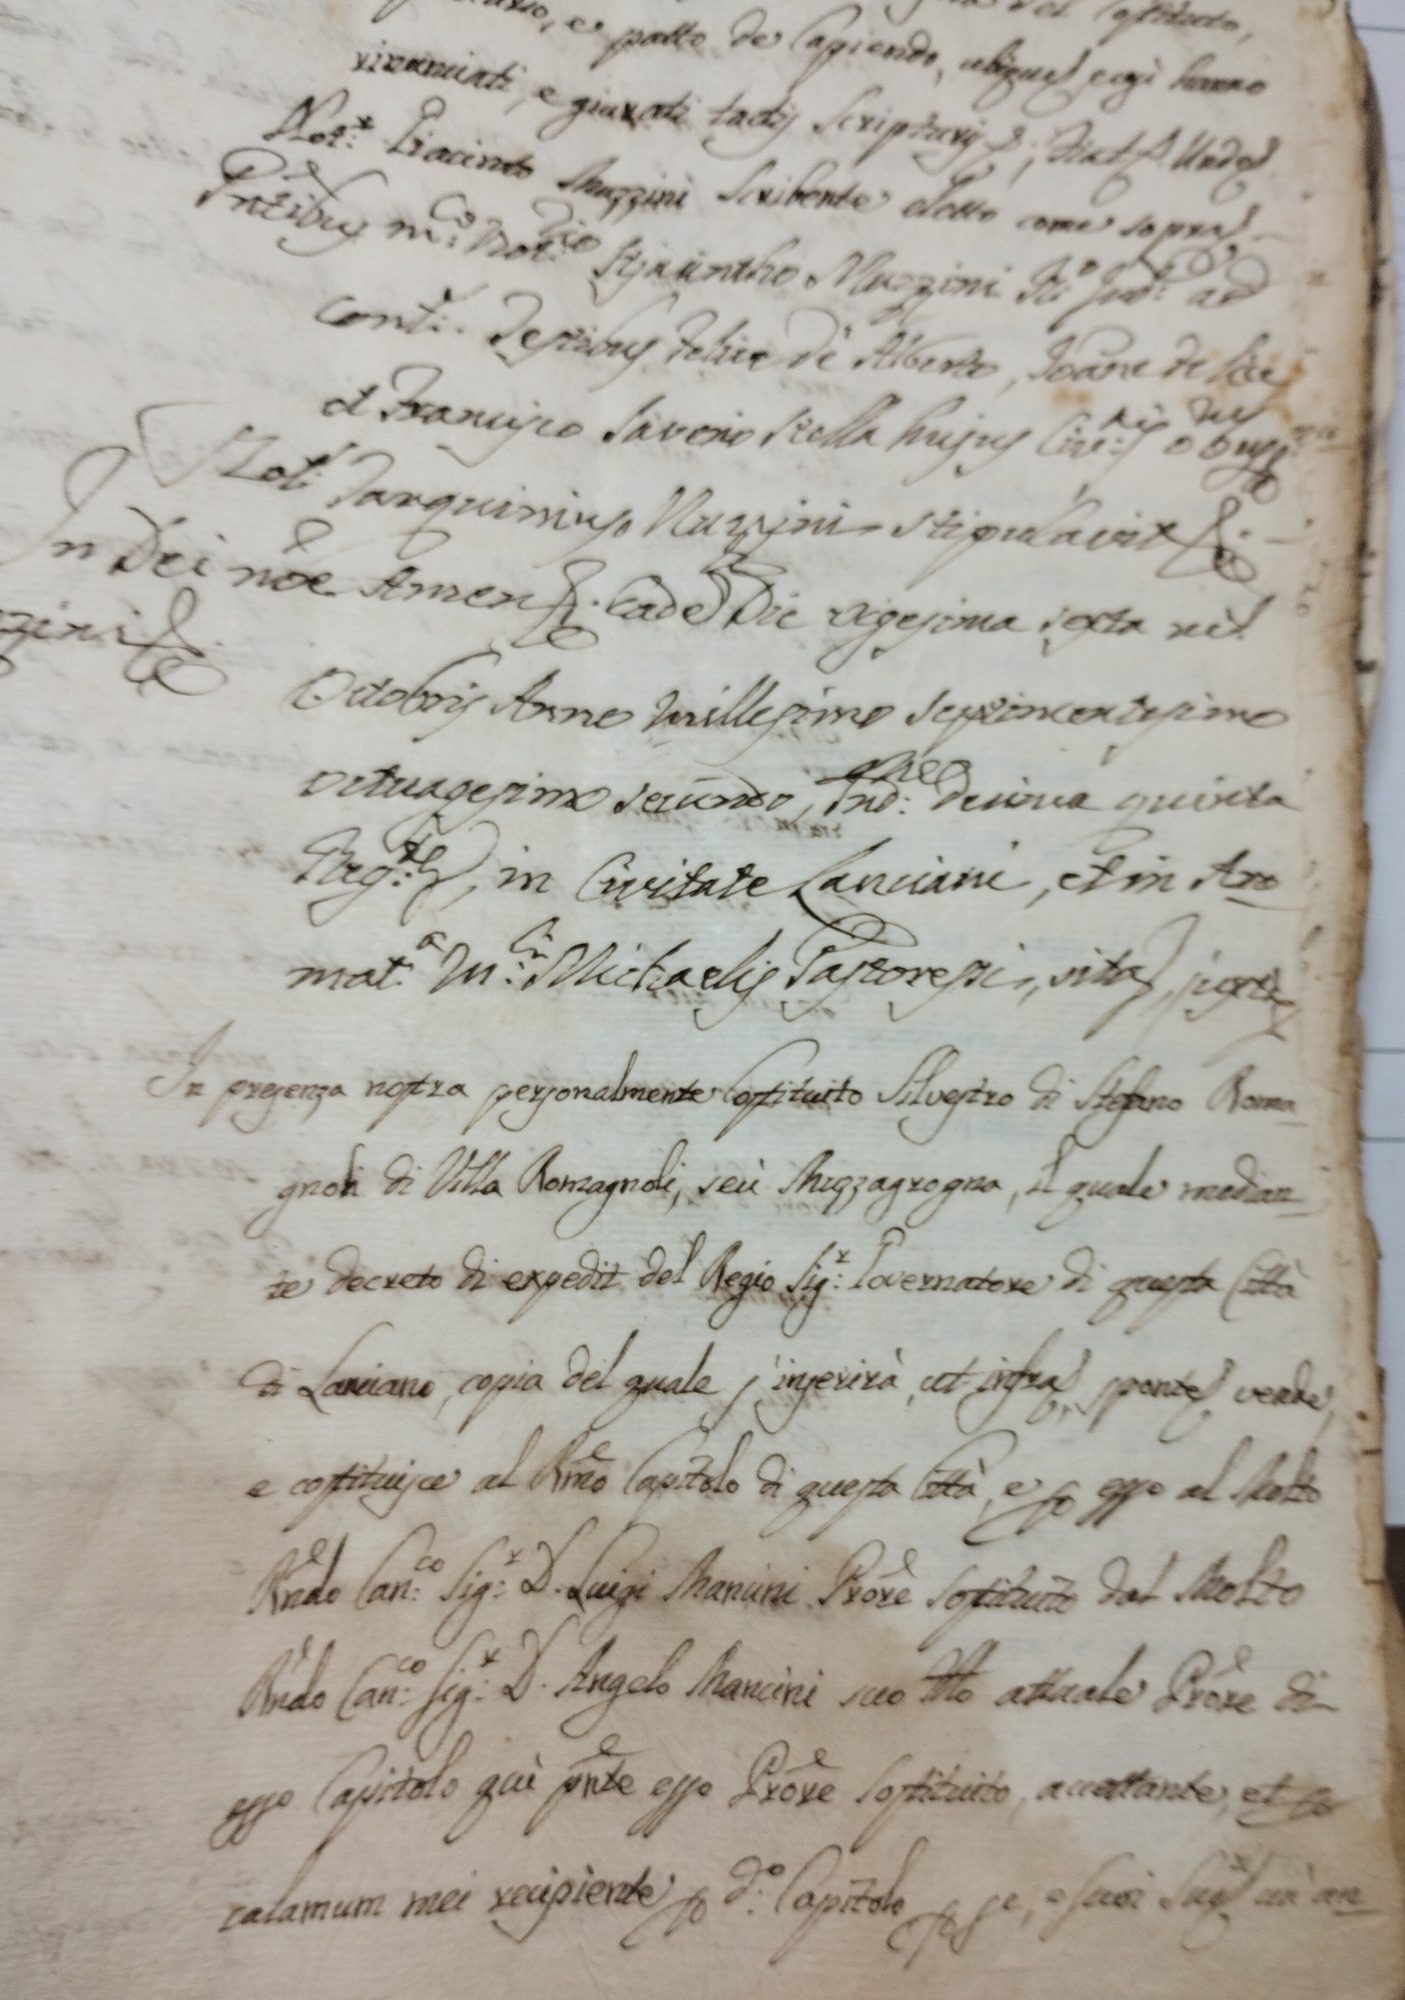 e patto de Capiendo, aliquid, e così hanno
rinunciati, e giurati tactis Scripturis &, Fiat & Unde &
Not.r Giacinto Muzzini Scribente eletto come sopra
Pntibus m.co Not.rio Hyacintho Muzzini R.o Jud.e ad
cont. Testibus Felice di Alberto, Joane de
et Francisco Saverio Stella hujus Civ.tis
Not.r Tarquinius Muzzini stipulavit &
In Dei nõe Amen &. Eadẽ Die vigesima sexta m̃s
zzini &
Octobris Anno Millesimo Septincentesimo
octuagesimo secundo, Ind:ne decima quinta
Reg.tibus, in Civitate Lanciani, et in Aro
mat.a M.ci Michaelis Pastoressi, sita, juxta
In presenza nostra personalmente Costituito Silvestro di Stefano Roma
gnoli di Villa Romagnoli, seù Muzzagrogna, il quale median
te decreto di expedit del Regio Sig:r Governatore di questa Città
di Lanciano, copia del quale s'inserirà, ut infra, sponte vende,
e costituisce al Rmõ Capitolo di questa Città, e p esso al Molto
Rñdo Can:co Sig:r D. Luigi Mancini Prõre sostituito dal Molto
Rñdo Can:co Sig:r D. Angelo Mancini suo Zio attuale Prõre di
esso Capitolo quì pñte esso Prõre sostituito, accettante, et p
calamum mei recipiente p d:o Capitolo p se, e suoi Suc.ri un'an